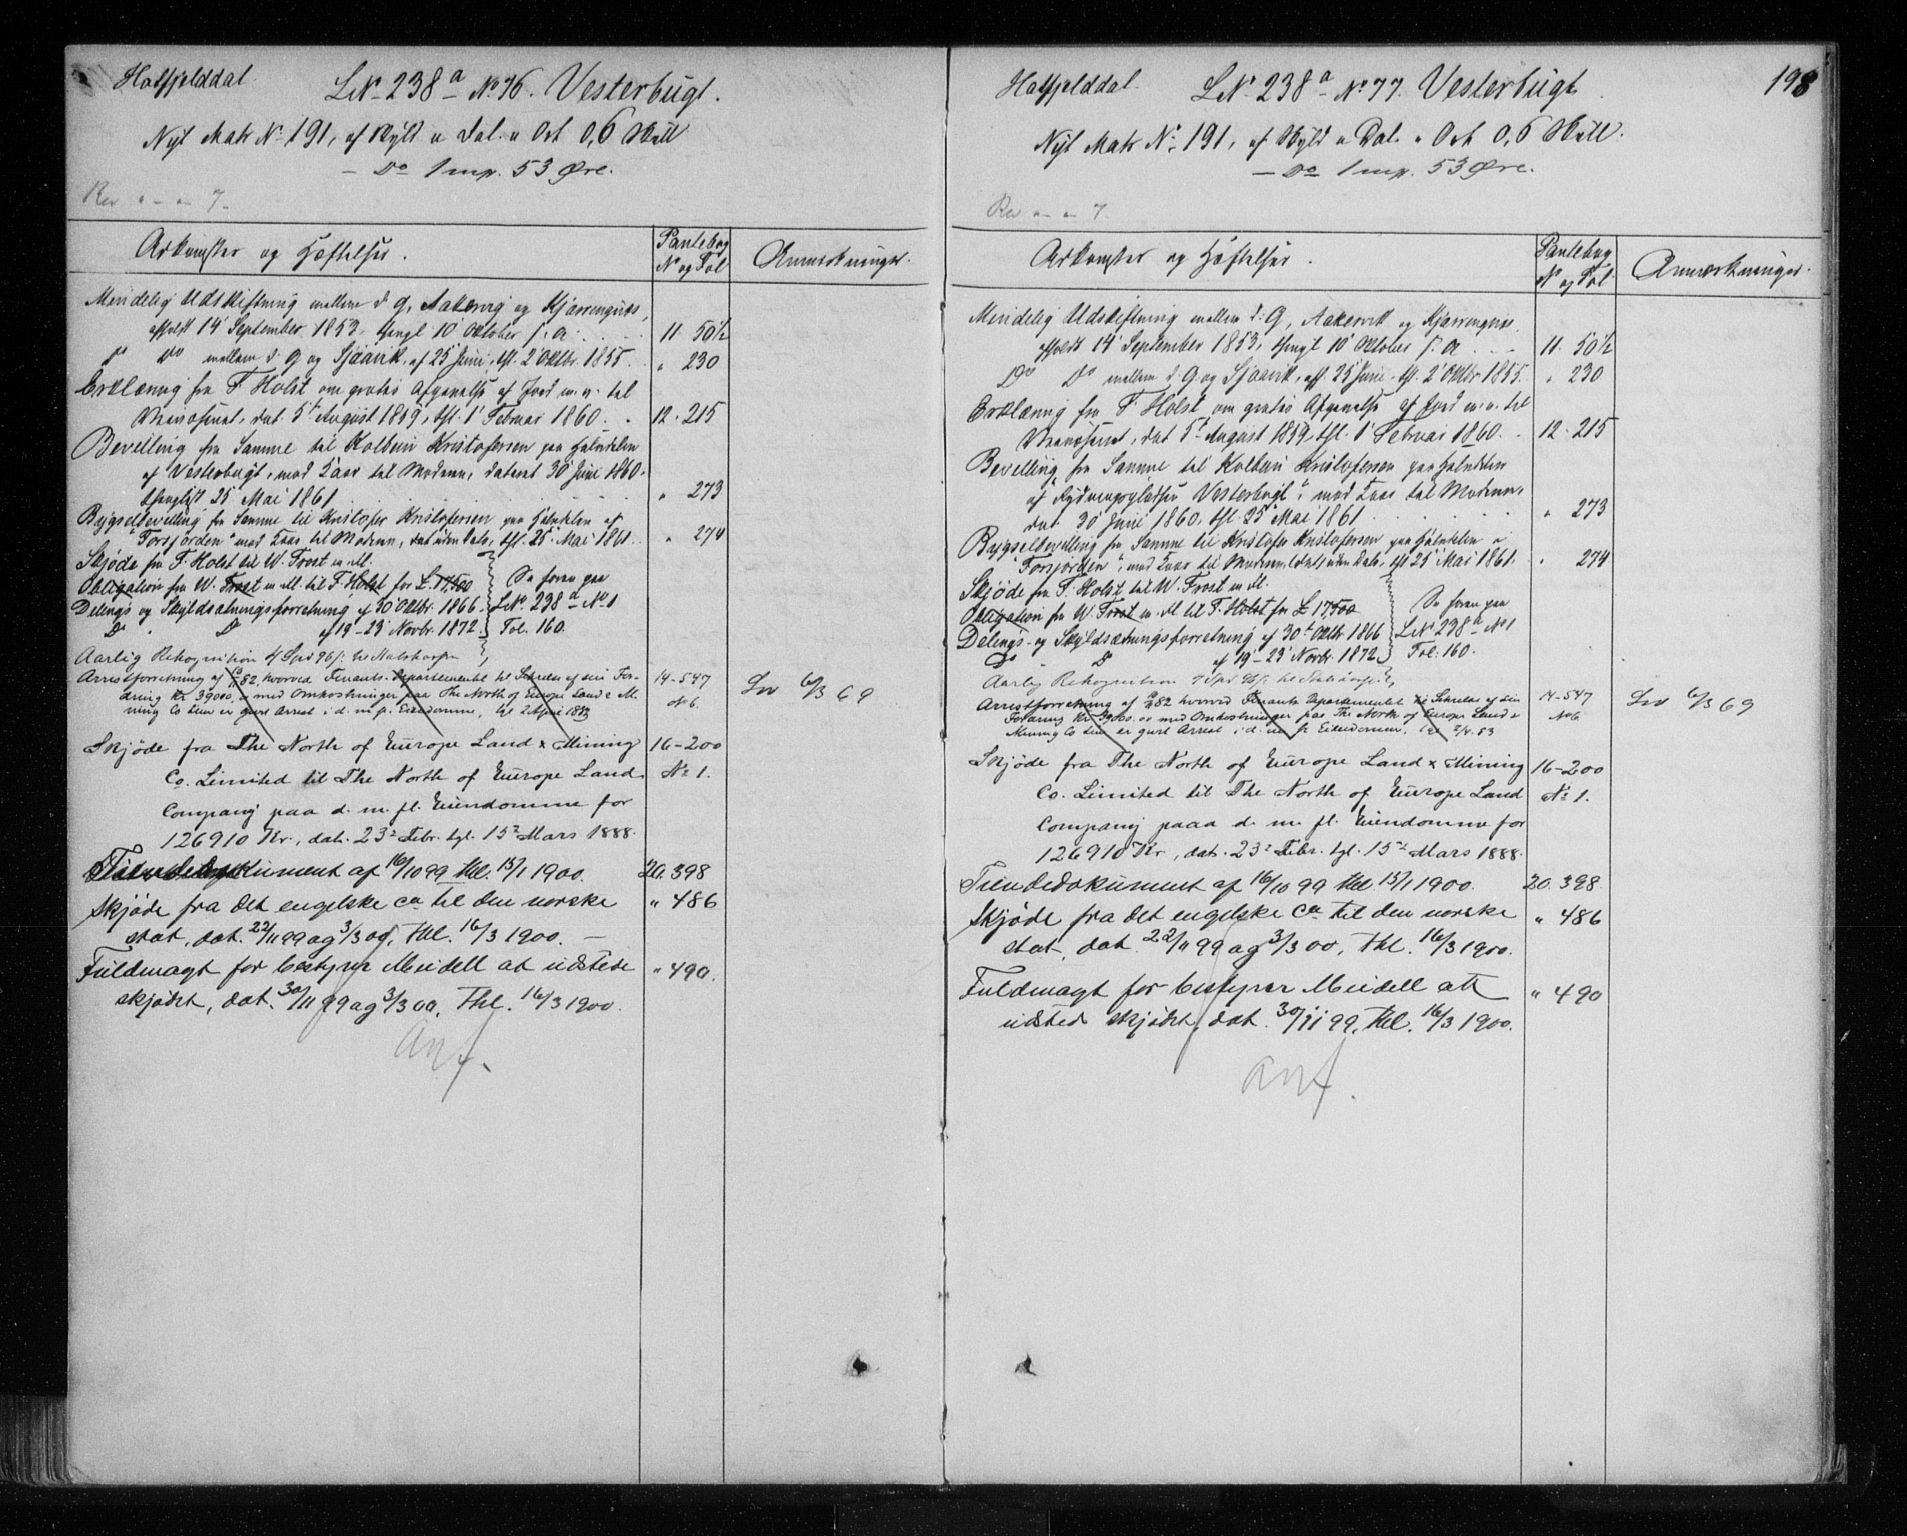 Hatfjelddal. LNo 238a No 76. Vesterbugt.
Nyt Matr No 191, af Skyld " Dal. " Ort 0,6 Skill
– Do 1 mp. 53 Øre.
Rev " – " 7 –
Adkomster og Hæftelser.
Pantebog
No og Fol
Anmærkninger.
Mindelig Udskiftning mellem d. G, Aakervig og Kjærrengnæs,
afholdt 14 September 1853, thingl 10 Oktober s. a. 11 50½
Do Do mellem d. G og Sjaavik, af 25 Juni, thl. 2 Oktbr. 1855. " 230
Erklæring fra F. Holst om gratis Afgivelse af Jord m. v. til
dat. 5te August 1859, thl. 1 Februar 1860. 12 · 215
Bevilling fra Samme til Kolbein Kristofersen paa Halvdelen
af Vesterbugt, med Kaar til Moderen, dateret 30 Juni 1860.
thinglyst 25 Mai 1861 " 273
Bygselbevilling fra Samme til Kristofer Kristofersen paa Halvdelen af
"Forsjorden" med Kaar til Moderen, dat uden Dato, thl. 25 Mai 1861. " 274
Skjøde fra F. Holst til W. Frost m. fl.
Obligation fra W. Frost m. fl. til F. Holst for £ 17,500 Se foran paa
Delings og Skyldsætningsforretning af 30 Oktbr. 1866. LNo. 238a No 1
Do " Do af 19 – 23 Novbr. 1872. Fol. 160.
Aarlig Rekognition 4 Spd 96 s. til Statskassen
Arrestforretning af 82, hvorved Finants-Departementet til Sikkrelse af sin For- 14-547
dring Kr 39000, oo med Omkostninger paa The North of Europe Land & Mi- No 6. Lov 6/3 69
ning Co Lim er gjort Arrest i d. m. fl. Eiendomme, tgl 2 April 1883
Skjøde fra The North of Europe Land & Mining 16-200
Co. Limited til The North of Europe Land No 1.
Company paa d. m. fl. Eiendomme for
126910 Kr., dat. 23de Febr. tgl. 15de Mars 1888.
Tiendedokument af 16/10 99 thl. 15/1 1900. 20. 398
Skjøde fra det engelske co til den norske " 486
stat, dat. 22/11 99 og 3/3 00, thl. 16/3 1900. –
Fuldmagt for bestyrer Meidell at udstede " 490.
skjødet, dat. 30/11 99 og 3/3 00, thl. 16/3 1900.
Anf.
Hatfjelddal. LNo 238a No 77. Vesterbugt 198
Nyt Matr No. 191, af Skyld " Dal. " Ort 0,6 Skill.
– Do 1 mp. 53 Øre.
Rev " – " 7.
Adkomster og Hæftelser.
Pantebog
No og Fol.
Anmærkninger.
Mindelig Udskiftning mellem d. G, Aakervik og Kjærrengnæs,
afholdt 14 September 1853, thingl 10 Oktober s. a. 11. 50½
Do Do mellem d. G og Sjaavik, af 25 Juni, thl. 2 Oktbr 1855. " 230
Erklæring fra F. Holst om gratis Afgivelse af Jord m. v. til
dat 5te August 1859, thl. 1 Februar 1860. 12 · 215
Bevilling fra Samme til Kolbein Kristofersen paa Halvdelen
af Rydningspladsen "Vesterbugt", med Kaar til Moderen,
dat. 30 Juni 1860, thl. 25 Mai 1861 " 273
Bygselbevilling fra Samme til Kristofer Kristofersen paa Halvdelen a
"Forsjorden", med Kaar til Moderen, dat uden Dato, thl 25 Mai 1861. " 274
Skjøde fra F. Holst til W. Frost m. fl.
Obligation fra W. Frost m. fl til F. Holst for £ 17,500 Se foran paa
Delings- og Skyldsætningsforretning af 30te Oktbr. 1866 LNo 238a No 1
Do " Do af 19 – 23 Novbr. 1872. Fol. 160.
Aarlig Rekognition 4 Spd 96 s. til Statskassen,
Arrestforretning af 82 hvorved Finants Departementet til Sikrelse af sin 14-547
Fordring Kr. 39000. oo med Omkostninger paa The North of Europe Land & No 6 Lov 6/3 69
Mining Co Lim er gjort Arrest i d. m fl Eiendomme, tgl 2/4 83
Skjøde fra The North of Europe Land & Mining 16-200
Co. Limited til The North of Europe Land No 1.
Company paaa d. m. fl. Eiendomme for
126910 Kr., dat. 23de Febr. tgl. 15de Mars 1888.
Tiendedokument af 16/10 99 thl 15/1 1900. 20. 398.
Skjøde fra det engelske Co til den norske " 486
stat, dat 22/11 99 og 3/3 00, thl. 16/3 1900.
Fuldmagt for bestyrer Meidell att " 490
udsted skjødet, dat. 30/11 99, thl. 16/3 1900.
Anf.